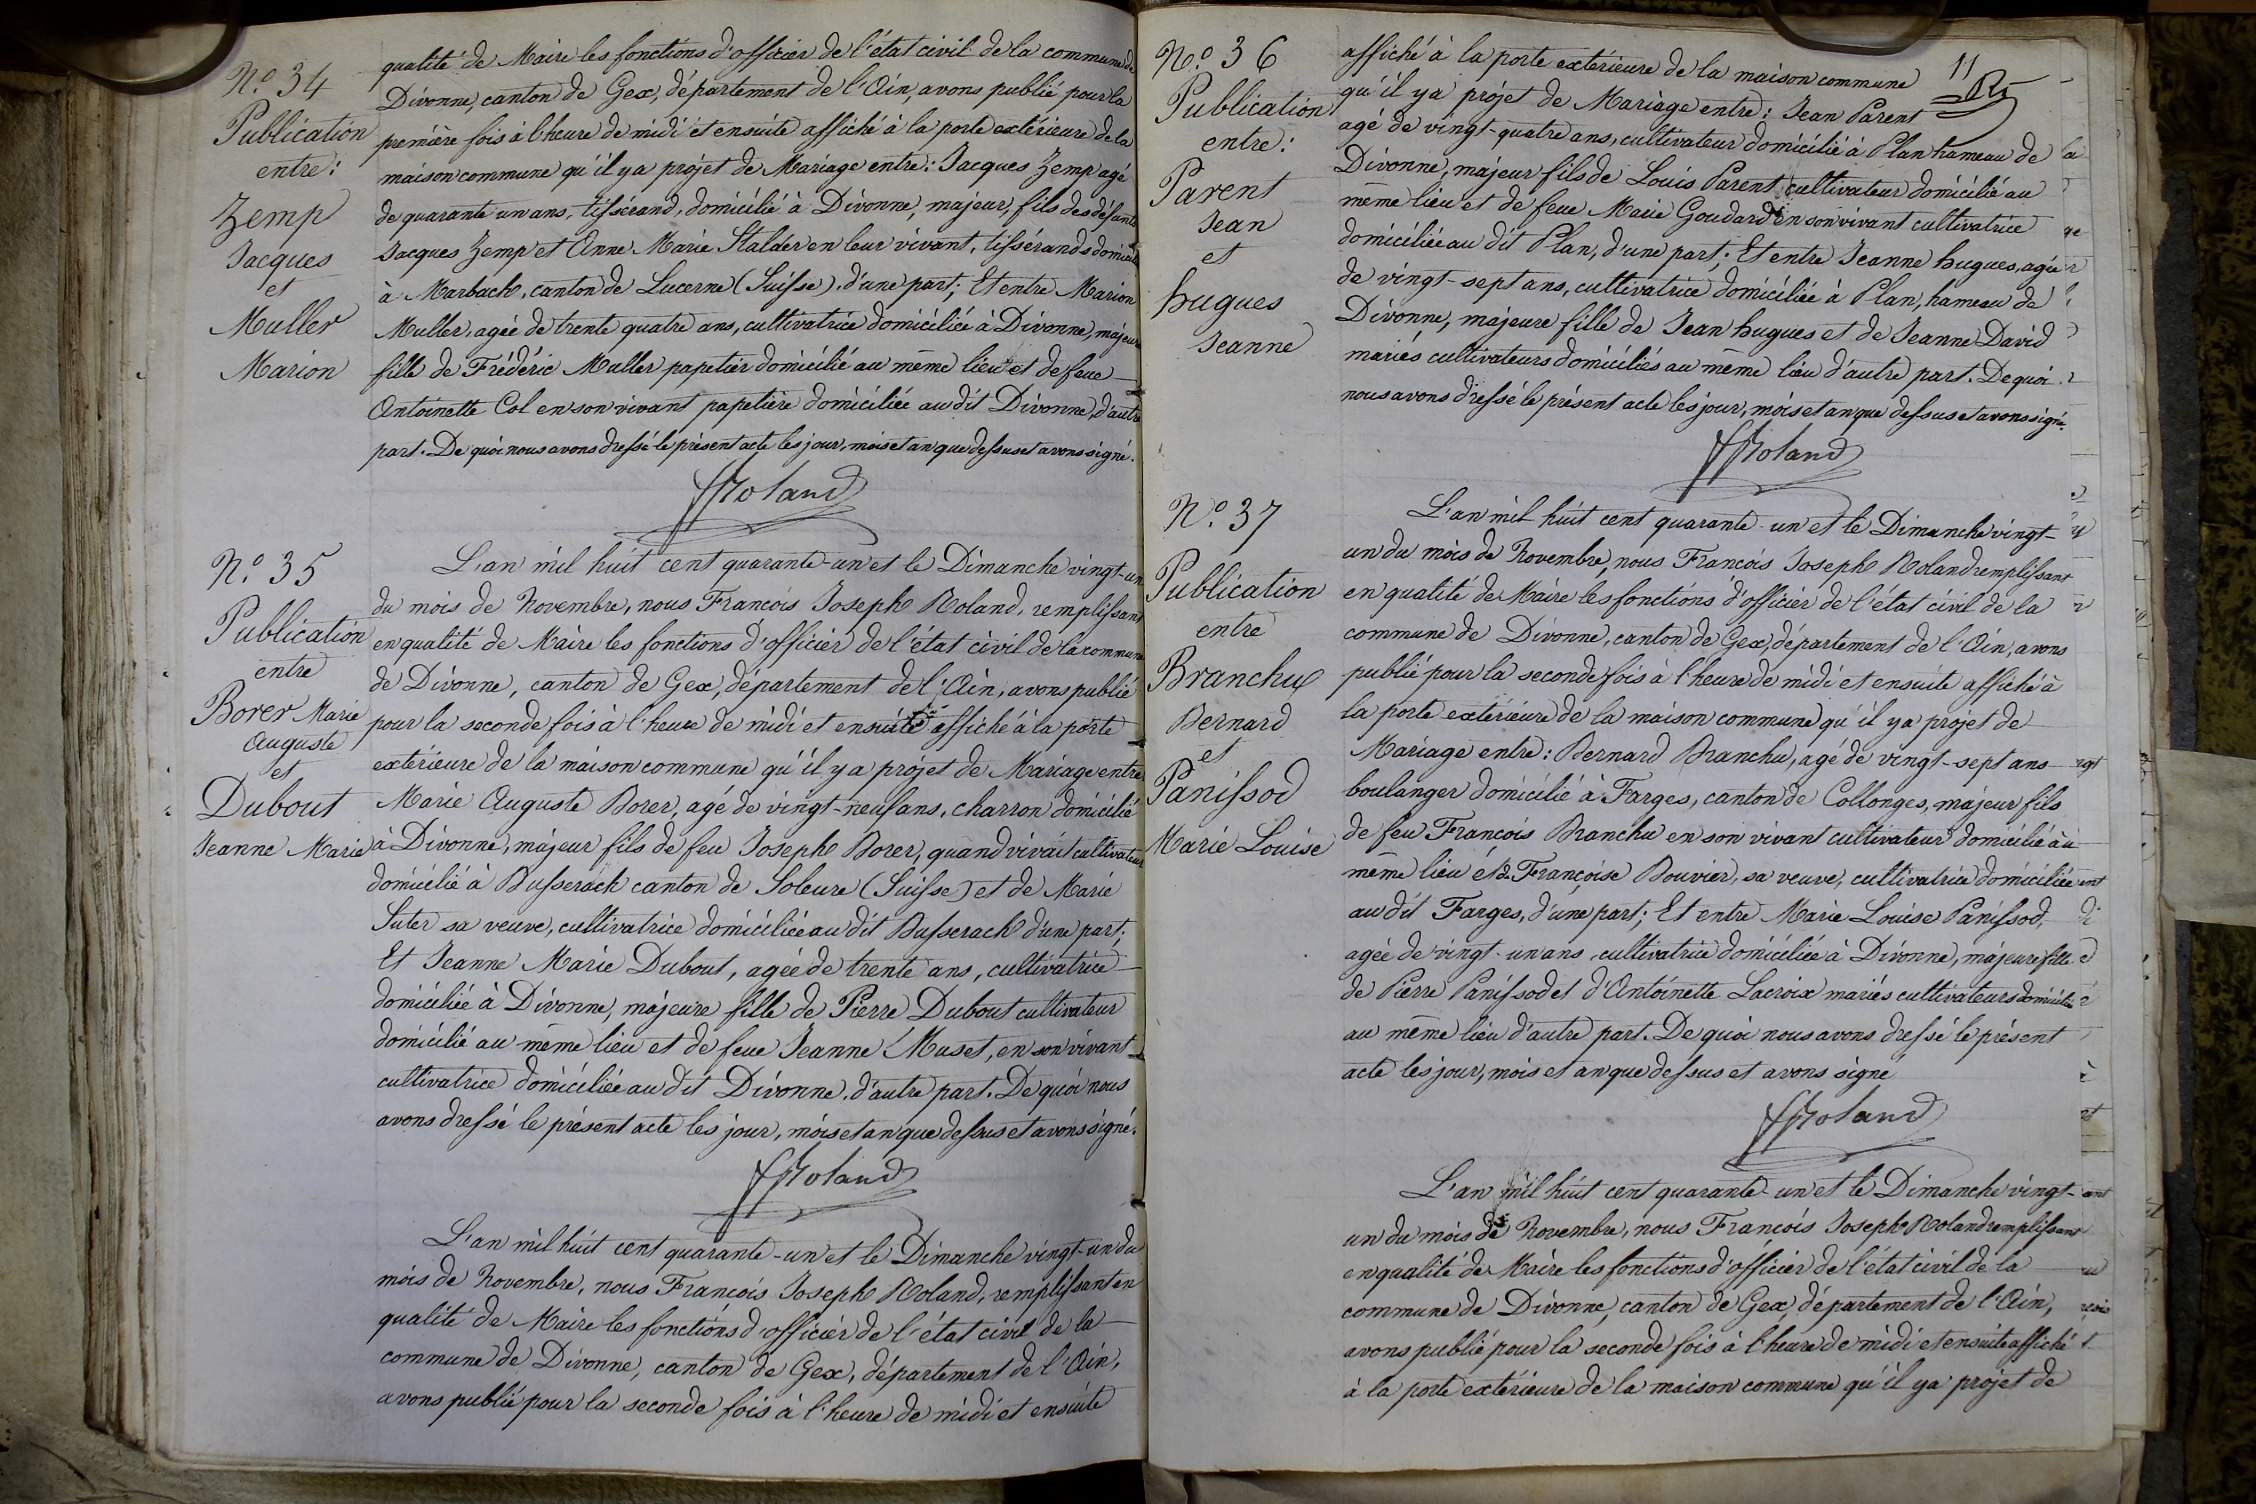 N.º 34
Publication
entre:
Zemp
Jacques
et
Muller
Marion
qualité de Maire les fonctions d'officier de l'état civil de la commune de
Divonne, canton de Gex, département de l'Ain, avons publié pour la
première fois à l'heure de midi et ensuite affiché à la porte extérieure de la
maison commune qu'il y a projet de Mariage entre: Jacques Zemp agé
de quarante un ans, tissérand, domicilié à Divonne, majeur, fils des défunts
Jacques Zemp et Anne Marie Stalder en leur vivant, tissérands domiciliés
à Marbach, canton de Lucerne (Suisse), d'une part; Et entre Marion
Muller, agée de trente quatre ans, cultivatrice domiciliée à Divonne, majeure
fille de Frédéric Muller papetier domicilié au même lieu et de feue
Antoinette Col en son vivant papetière domiciliée au dit Divonne, d'autre
part. De quoi nous avons dressé le présent acte les jour, mois et an que dessus et avons signé.
Roland
N.º 35
Publication
entre
Borer Marie
Auguste
et
Dubout
Jeanne Marie
L'an mil huit cent quarante-un et le Dimanche vingt-un
du mois de Novembre, nous François Joseph Roland, remplissant
en qualité de Maire les fonctions d'officier de l'état civil de la commune
de Divonne, canton de Gex, département de l'Ain, avons publié
pour la seconde fois à l'heure de midi et ensuite affiché à la porte
extérieure de la maison commune qu'il y a projet de Mariage entre
Marie Auguste Borer, agé de vingt-neuf ans, charron domicilié
à Divonne, majeur fils de feu Joseph Borer, quand vivait cultivateur
domicilié à Busserach canton de Soleure (Suisse) et de Marie
Suter sa veuve, cultivatrice domiciliée au dit Busserach d'une part;
Et Jeanne Marie Dubout, agée de trente ans, cultivatrice
domiciliée à Divonne, majeure fille de Pierre Dubout cultivateur
domicilié au même lieu et de feue Jeanne Muset, en son vivant
cultivatrice domiciliée au dit Divonne, d'autre part. De quoi nous
avons dressé le présent acte les jour, mois et an que dessus et avons signé.
Roland
L'an mil huit cent quarante-un et le Dimanche vingt-un du
mois de Novembre, nous François Joseph Roland, remplissant en
qualité de Maire les fonctions d'officier de l'état civil de la
commune de Divonne, canton de Gex, département de l'Ain,
avons publié pour la seconde fois à l'heure de midi et ensuite
11
N.º 36
Publication
entre:
Parent
Jean
et
hugues
Jeanne
affiché à la porte extérieure de la maison commune
qu'il y a projet de Mariage entre: Jean Parent
agé de vingt-quatre ans, cultivateur domicilié à Plan hameau de
Divonne, majeur fils de Louis Parent cultivateur domicilié au
même lieu et de feue Marie Goudard en son vivant cultivatrice
domiciliée au dit Plan, d'une part; Et entre Jeanne hugues, agée
de vingt-sept ans, cultivatrice domiciliée à Plan, hameau de
Divonne, majeure fille de Jean hugues et de Jeanne David
mariés cultivateurs domiciliés au même lieu d'autre part. De quoi
nous avons dressé le présent acte les jour, mois et an que dessus et avons signé.
Roland
N.º 37
Publication
entre
Branchu
Bernard
et
Panissod
Marie Louise
L'an mil huit cent quarante-un et le Dimanche vingt-
un du mois de Novembre, nous François Joseph Roland remplissant
en qualité de Maire les fonctions d'officier de l'état civil de la
commune de Divonne, canton de Gex, département de l'Ain, avons
publié pour la seconde fois à l'heure de midi et ensuite affiché à
la porte extérieure de la maison commune qu'il y a projet de
Mariage entre: Bernard Branchu, agé de vingt-sept ans
boulanger domicilié à Farges, canton de Collonges, majeur fils
de feu François Branchu en son vivant cultivateur domicilié au
même lieu et de Françoise Bouvier, sa veuve, cultivatrice domiciliée
au dit Farges, d'une part; Et entre Marie Louise Panissod,
agée de vingt-un ans, cultivatrice domiciliée à Divonne, majeure fille
de Pierre Panissod et d'Antoinette Lacroix mariés cultivateurs domiciliés
au même lieu d'autre part. De quoi nous avons dressé le présent
acte les jour, mois et an que dessus et avons signé
Roland
L'an mil huit cent quarante-un et le Dimanche vingt-
un du mois de Novembre, nous François Joseph Roland remplissant
en qualité de Maire les fonctions d'officier de l'état civil de la
commune de Divonne, canton de Gex, département de l'Ain,
avons publié pour la seconde fois à l'heure de midi et ensuite affiché
à la porte extérieure de la maison commune qu'il y a projet de